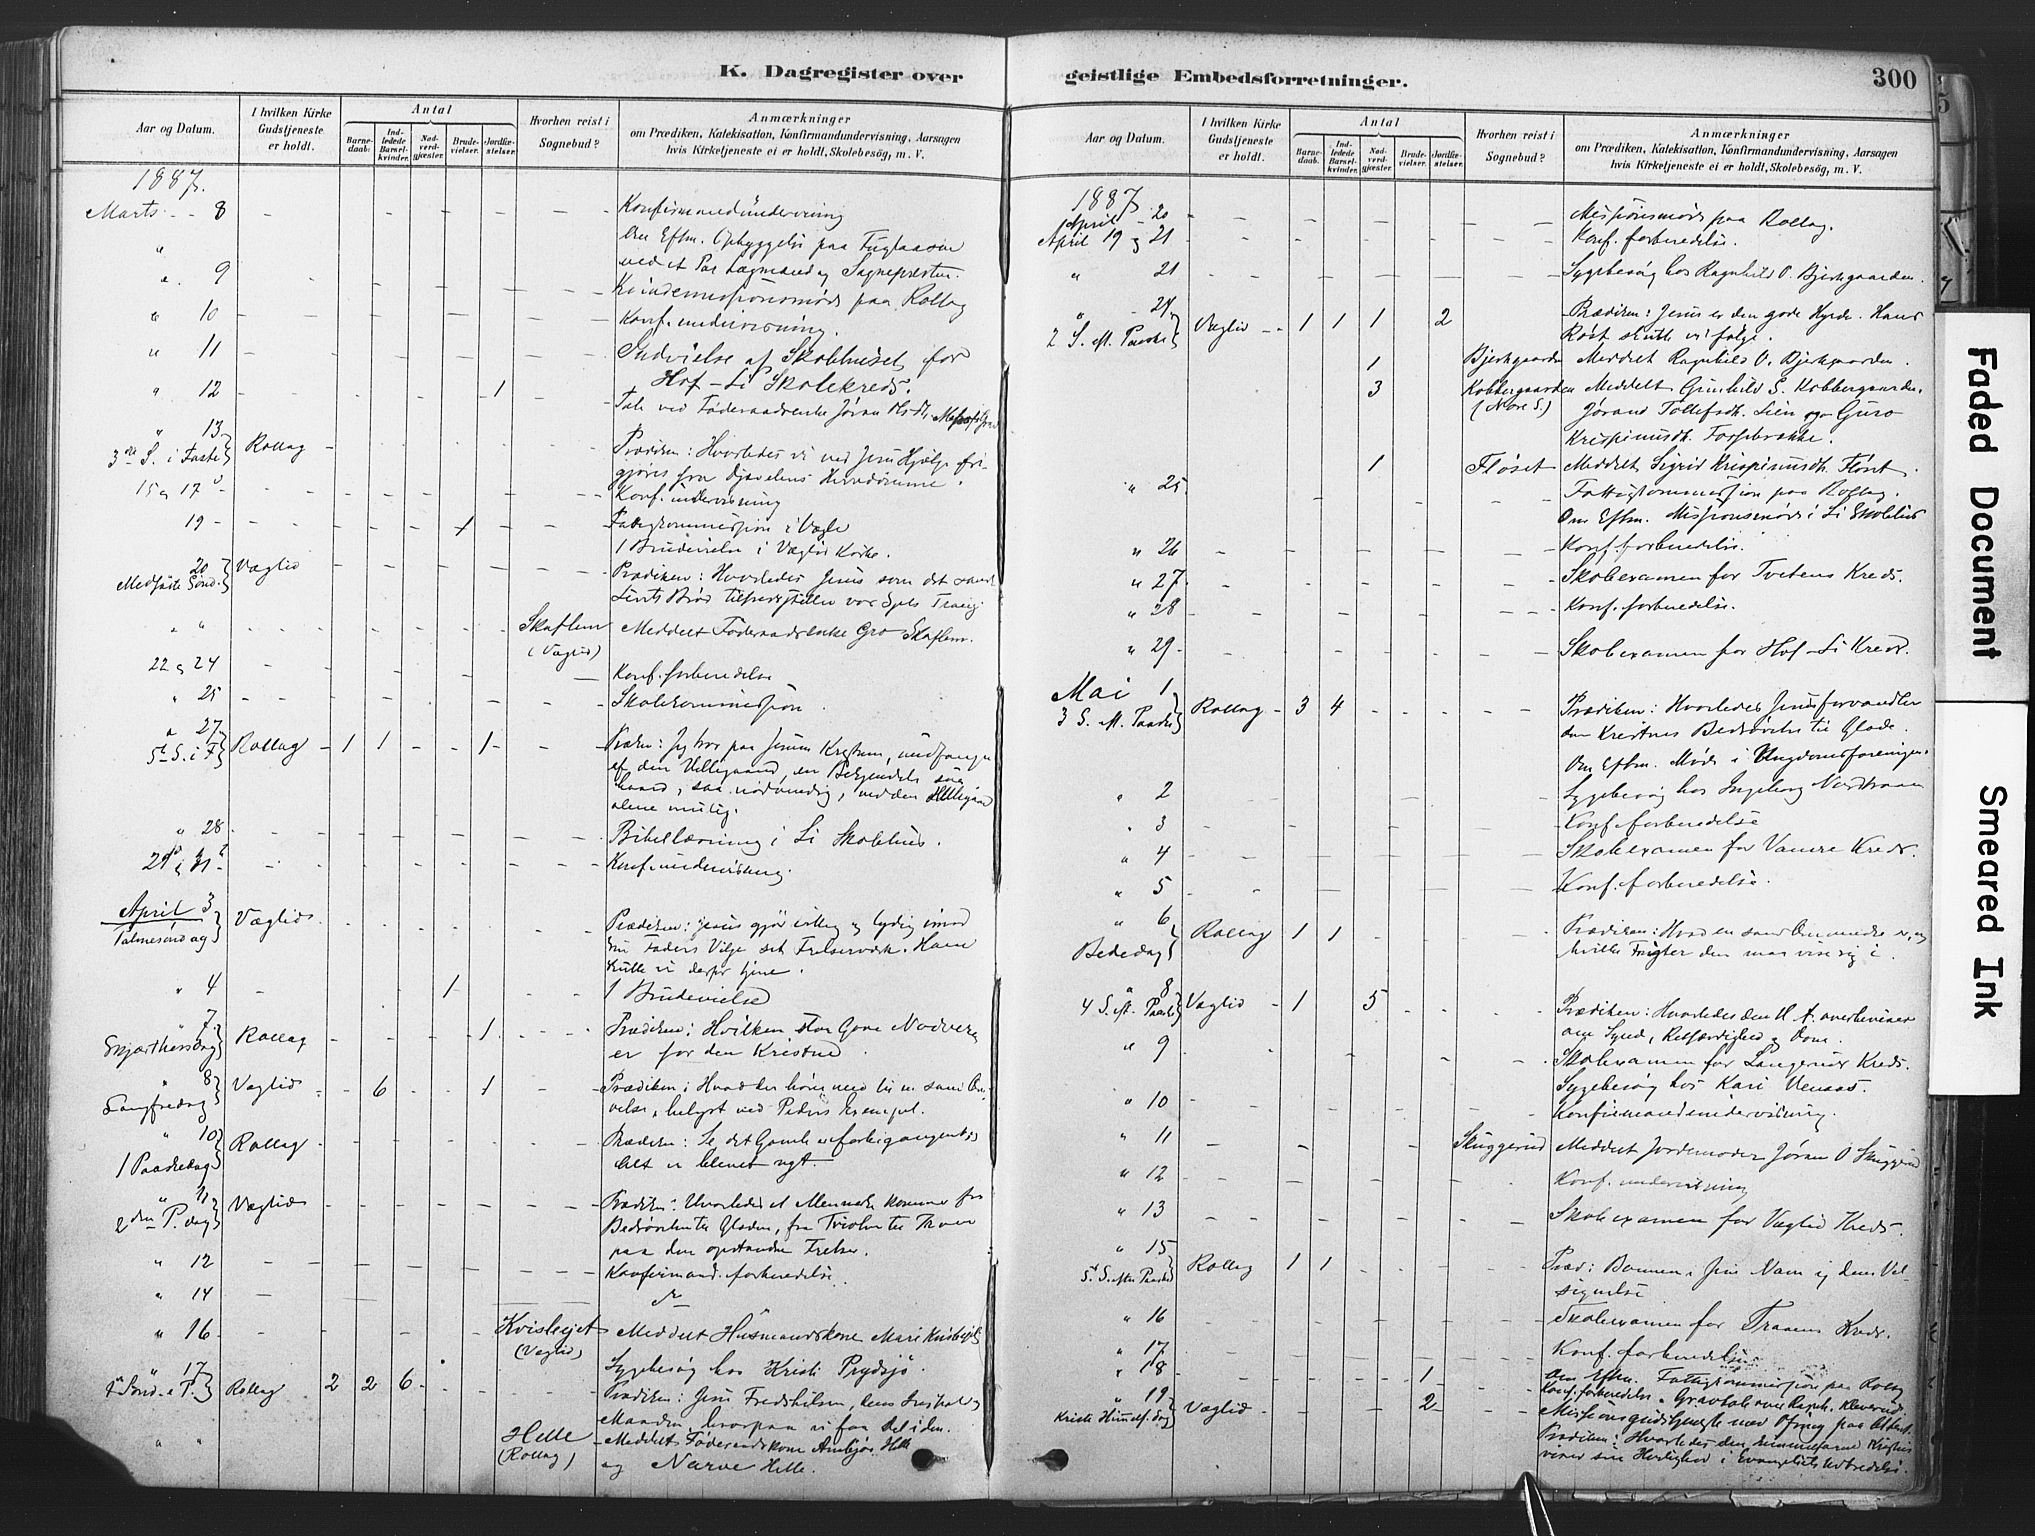 K. Dagregister over geistlige Embedsforretninger.
300
Aar og Datum.
I hvilken Kirke Gudstjeneste er holdt.
Antal
Barne-daab.
Ind-ledede Barsel-kvinder.
Nad-verd-gjæster.
Brude-vielser.
Jordfæ-stelser.
Hvorhen reist i Sognebud?
Anmærkninger
om Prædiken, Katekisation, Konfirmandundervisning, Aarsagen
hvis Kirketjeneste ei er holdt, Skolebesög, m. V.
1887.
Marts - - 8 Konfirmandundervisning
" Om Eftm. Opbyggelse paa Fuglaasen
ved et Par Lægmænd og Sognepresten.
" 9 Kvindemissionsmøde paa Rollag
" 10 Konf. undervisning.
" 11 Indvielse af Skolehuset for
Hof-Li Skolekreds.
" 12 1 Tale ved Føderaadsenke Jøran
" 13 3die S. i Faste Rollag Prædiken: Hvorledes vi ved Jesu Hjælp fri-
gjøres fra Djævelens Herredømme.
15 og 17 Konf. undervisning
19 1 Fattigkommission i Vægli
1 Brudevielse i Væglid Kirke.
20 Midfaste Sønd. Væglid Prædiken: Hvorledes Jesus som det sande
Livets Brød tilfredsstiller vor Sjæls Trang
" " Skaflem Meddelt Føderaadsenke Gro Skaflem.
(Væglid)
22 og 24 Konf. forberedelse
" 25 Skolekommission.
" 27 5te S. i F. Rollag 1 1 1 Præken: Jeg tror paa Jesum Kristum, undfangen
af den Helligaand,
alene mulig.
" 28 Bibellæsning i Li Skolehus.
29 og 31 Konf. undervisning.
April 3 Palmesøndag Væglid Prædiken: Jesus gjør villig og lydig imod
sin Faders Vilje sit Frelserværk. Ham
skulle vi derfor tjene.
" 4 1 1 Brudevielse
" 7 Skjærthorsdag Rollag 1 Prædiken: Hvilken stor Gave Nadveren
er for den Kristne.
" 8 Langfredag Væglid 6 1 Prædiken: Hvad der hører med til en sand Om-
vendelse, belyst ved Peders Exempel.
" 10 1 Paaskedag Rollag Prædiken: Se det Gamle er forbigangent,
Alt er blevet nyt.
" 11 2den P. dag Væglid Prædiken: Hvorledes et Menneske kommer fra
Bedrøvelse til Glæden, fra Tvivlen til Troen
paa den opstandne Frelser.
" 12 Konfirmand. forberedelse.
" 14
" 16 Kvislejet Meddelt Husmandskone Mari Kvislejet
(Væglid)
Sygebesøg hos Kristi Prydsjø.
" 17 1ste Sønd. e. P. Rollag 2 2 6 Prædiken: Jesu Fredshilsen,
Maaden hvorpaa vi faa Del i den.
" " Helle Meddelt Føderaadskone Ambjør Helle
(Rollag) og Narve Helle.
Aar og Datum.
I hvilken Kirke Gudstjeneste er holdt.
Antal
Barne-daab.
Ind-ledede Barsel-kvinder.
Nad-verd-gjæster.
Brude-vielser.
Jordfæ-stelser.
Hvorhen reist i Sognebud?
Anmærkninger
om Prædiken, Katekisation, Konfirmandundervisning, Aarsagen
hvis Kirketjeneste ei er holdt, Skolebesög, m. V.
1887.
April - 20 Missionsmøde paa Rollag.
April 19 og 21 Konf. forberedelse.
" 21 Sygebesøg hos Ragnhild O. Bjerkgaarden.
" 24 2 S. eft. Paaske Væglid 1 1 1 2 Prædiken: Jesus er den gode Hyrde. Hans
Røst skulle vi følge.
1 Bjerkgaarden Meddelt Ragnhild O. Bjerkgaarden.
3 Kobbergaarden Meddelt Gunhild S. Kobbergaarden,
(Nore S.) Jørand Tollefsdt. Lien og Guro
Krispinusdt. Fossebrække.
1 Fløset Meddelt Sigrid Krispinusdt. Fløset.
" 25 Fattigkommission paa Rollag.
Om Eftm. Missionsmøde i Li Skolehus
" 26 Konf. forberedelse.
" 27 Skolexamen for Tveitens Kreds.
" 28 Konf. forberedelse.
" 29 Skolexamen for Hof-Li Kreds.
Mai 1 3 S. eft. Paaske Rollag 3 4 Prædiken: Hvorledes Jesus forvandler
den Kristnes Bedrøvelse til Glæde.
Om Eftm. Møde i Ungdomsforeningen.
" 2 Sygebesøg hos Ingeborg
" 3 Konf. forberedelse
" 4 Skolexamen for Kreds.
" 5 Konf. forberedelse.
" 6 Bededag Rollag 1 1 Prædiken: Hvad en sand Omvendelse er, og
hvilke Frugter den maa vise sig i.
" 8 4 S. eft. Paaske Væglid 1 5 Prædiken: Hvorledes den H. A. overbeviser
om Synd, Retfærdighed og Dom.
" 9 Skolexamen for Langerud Kreds.
Sygebesøg hos Kari Venaas.
" 10 Konfirmandundervisning.
" 11 Skuggerud Meddelt Jordemoder Jøran O Skuggerud
" 12 Konf. undervisning
" 13 Skolexamen for Væglid Kreds.
" 15 5te S. efter Paaske Rollag 1 1 Præd: Bønnen i Jesu Navn og dens Vel-
signelse
" 16 Skolexamen for Traaens Kreds.
" 17 Konf. forberedelse
" 18 1 Om Eftm. Fattigkommission paa Rollag
Konf. forberedelse.
" 19 Kristi Himmelf. dag Væglid 2 Missionsgudstjeneste med Ofring paa Alteret.
Prædiken: Hvorledes den himmelfarne Kristus
viser sin Herlighed i Evangeliets Udbredelse.
Faded Document
Smeared Ink